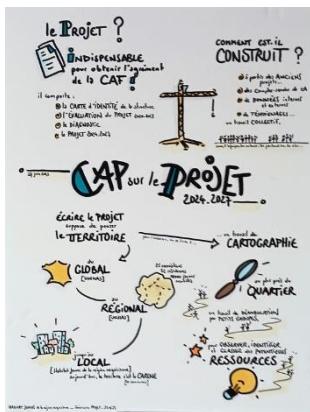 le PROJET ?
INDISPENSABLE
pour obtenir l'agrément
de la CAF !
il comporte :
la CARTE D'IDENTITÉ de la structure
l'ÉVALUATION du PROJET
le DIAGNOSTIC
le PROJET 2024-2027
COMMENT EST-IL
CONSTRUIT ?
à partir des ANCIENS
projets...
des Comptes-rendus de CA
de DONNÉES internes
et externes
de TÉMOIGNAGES...
un travail COLLECTIF.
CAP sur le PROJET
2024-2027
ÉCRIRE le PROJET
suppose de penser
le TERRITOIRE
un travail de
CARTOGRAPHIE
du GLOBAL
au RÉGIONAL
jusqu'au
LOCAL
au plus près du
QUARTIER
OBSERVER, IDENTIFIER
RESSOURCES